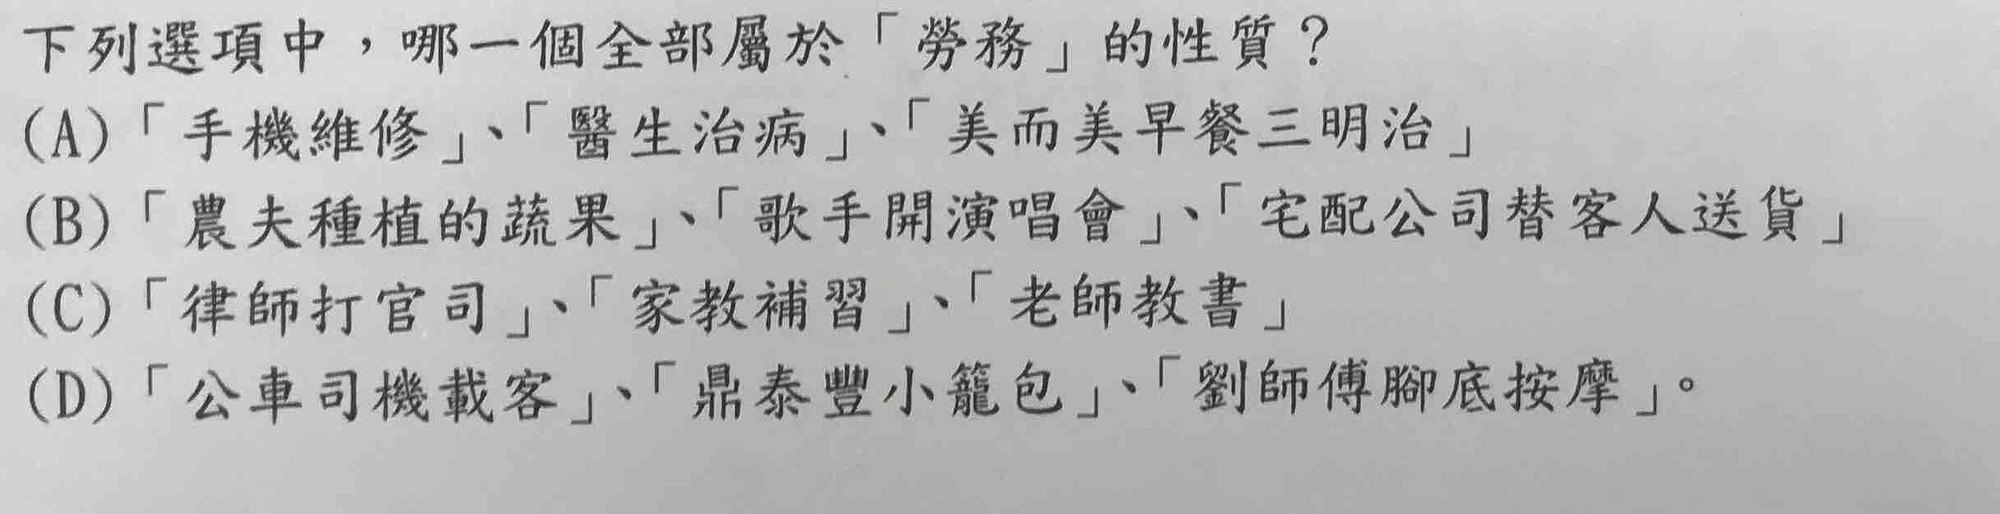 下列選項中，哪一個全部屬於「勞務」的性質？
(A)「手機維修」、「醫生治病」、「美而美早餐三明治」
(B)「農夫種植的蔬果」、「歌手開演唱會」、「宅配公司替客人送貨」
(C)「律師打官司」、「家教補習」、「老師教書」
(D)「公車司機載客」、「鼎泰豐小籠包」、「劉師傅腳底按摩」。